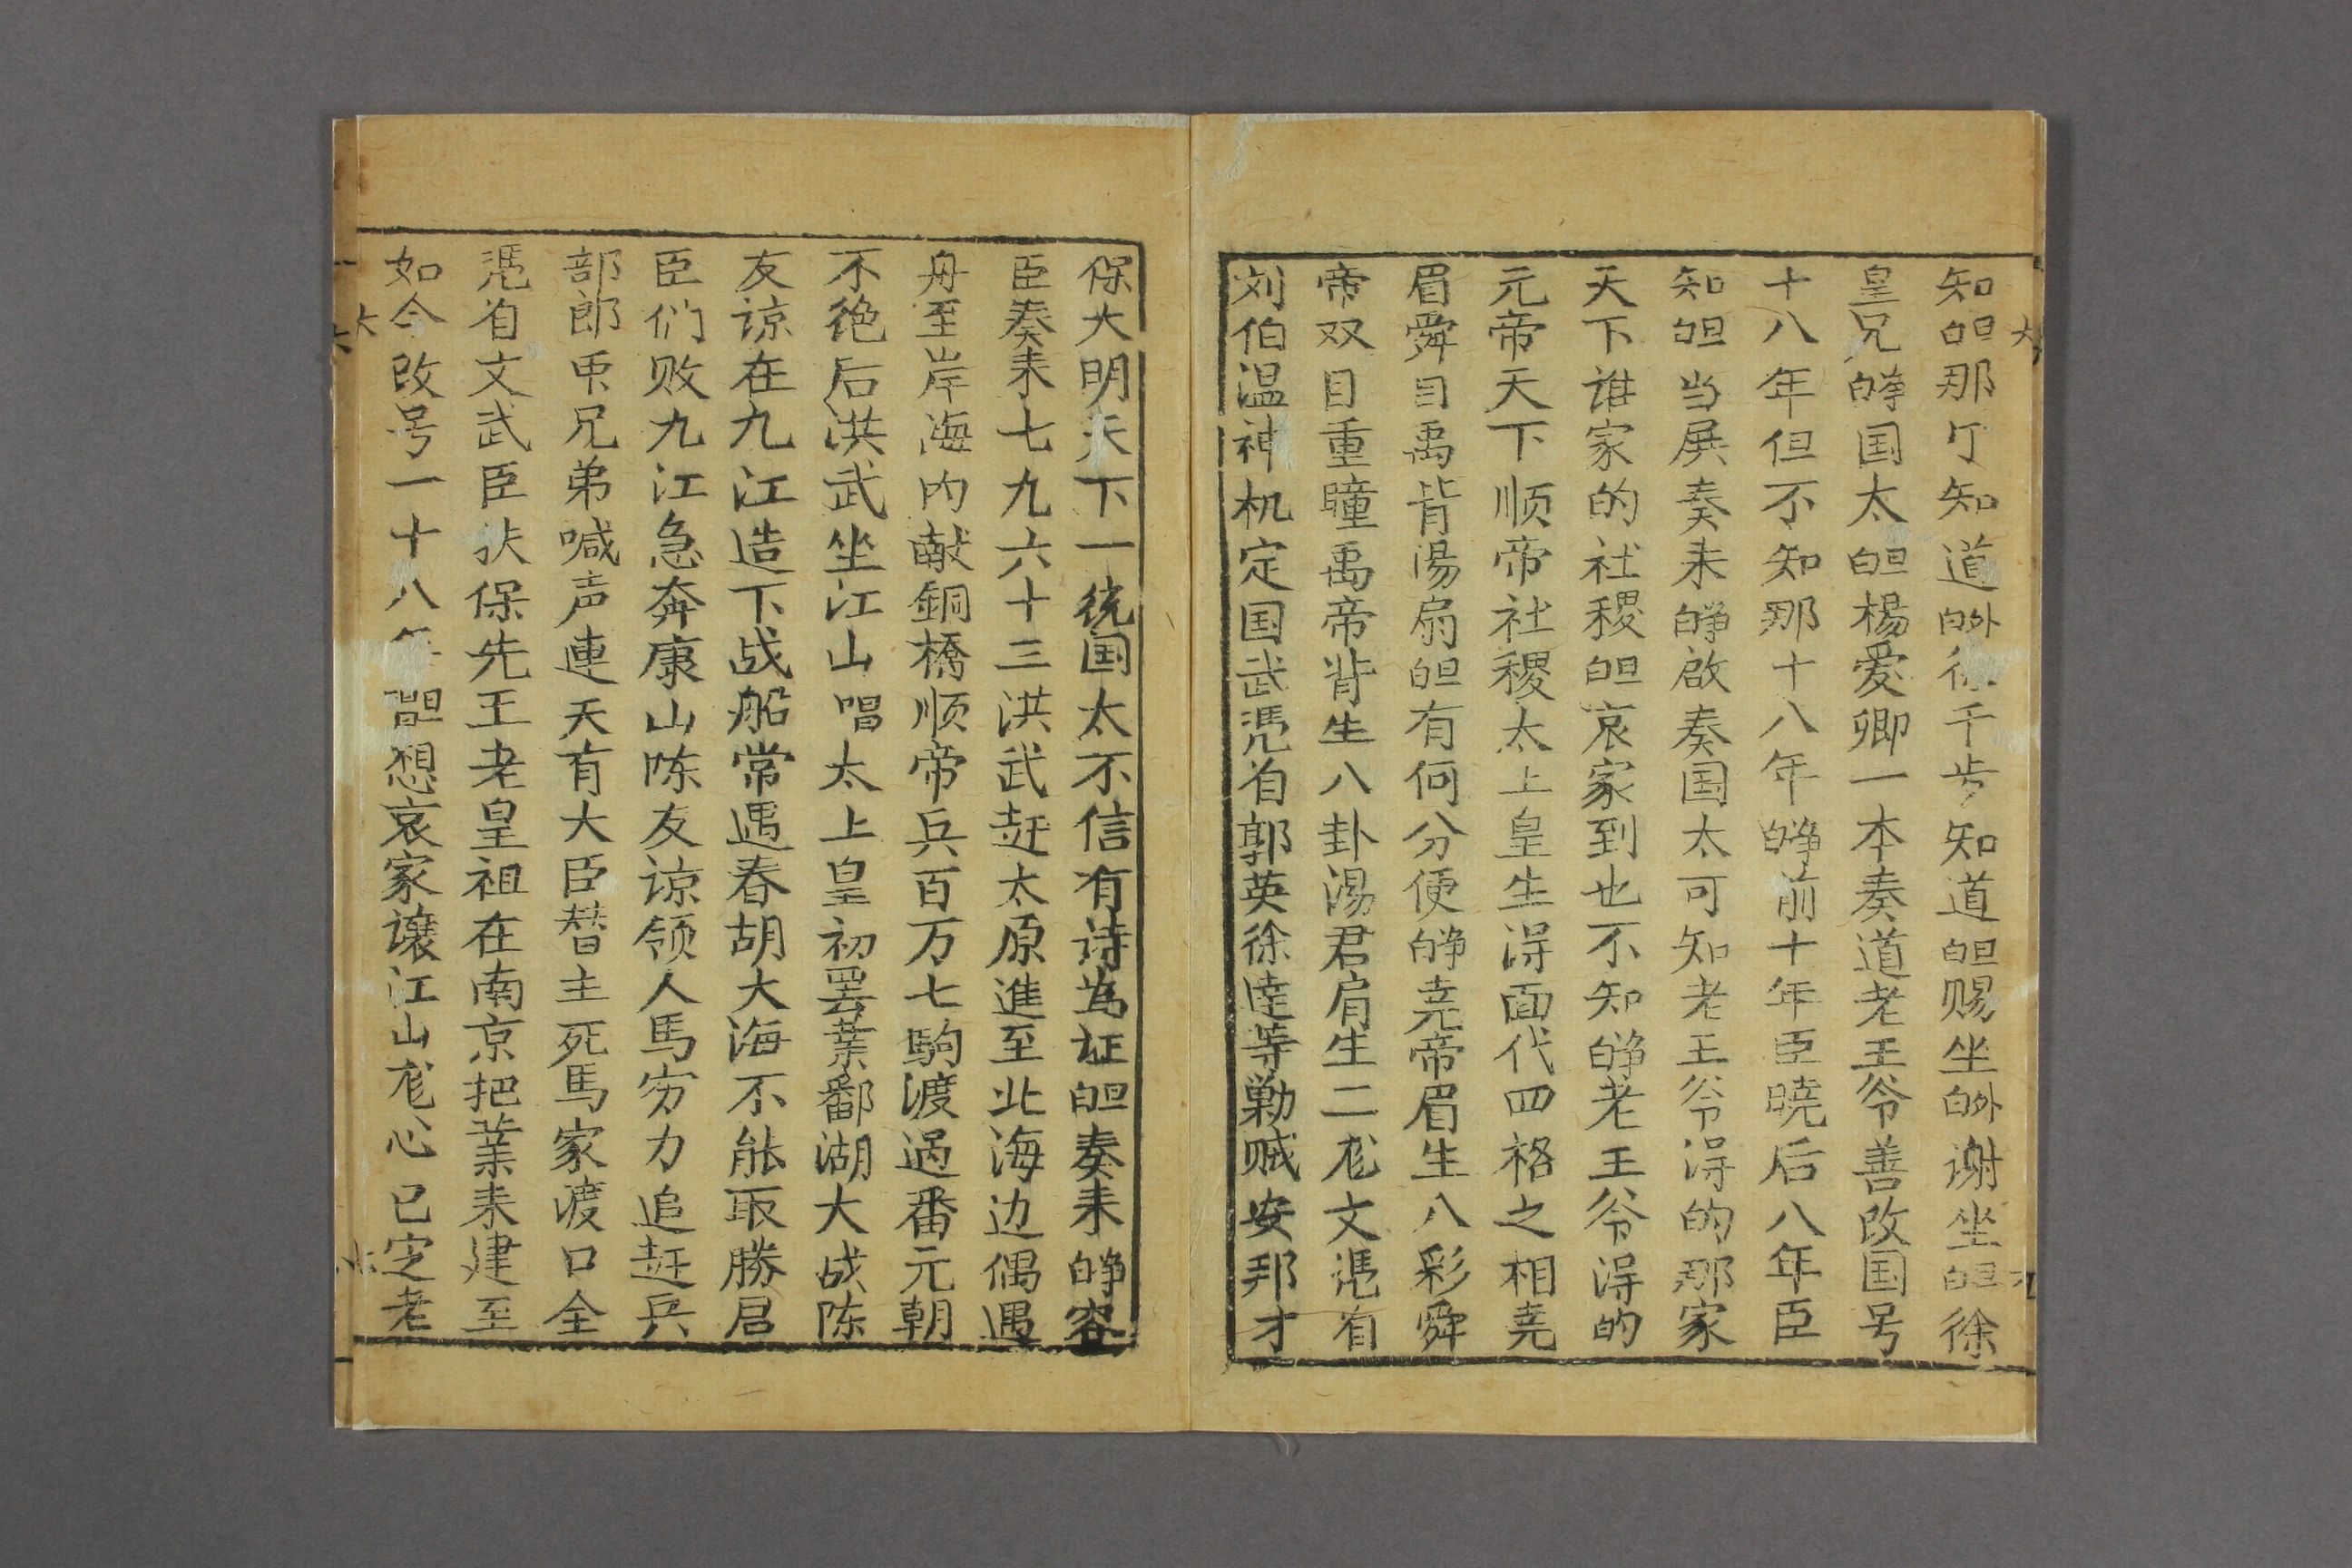 知白旦那厅知道白外徐千步知道白旦赐坐白外谢坐白旦徐
皇兄白净国太白旦楊爱卿一本奏道老王爷善改国号
十八年但不知那十八年白净前十年臣晓后八年臣
知白旦当殿奏来白净啟奏国太可知老王爷淂的那家
天下谁家的社稷白旦哀家到也不知白净老王爷淂的
元帝天下顺帝社稷太上皇生淂面代四格之相尭
眉舜目禹背湯扇白旦有何分便白净尭帝眉生八彩舜
帝双目重瞳禹帝背生八卦湯君肩生二龙文凴有
刘伯温神机定国武凴有郭英徐達等勦贼安邦才
保大明天下一统国太不信有诗為证白旦奏来白净容
臣奏来七九六十三洪武赶太原進至北海边偶遇
舟至岸海内献銅橋顺帝兵百万七駒渡過番元朝
不绝后洪武坐江山唱太上皇初罢業鄱湖大战陈
友谅在九江造下战船常遇春胡大海不能取勝君
臣们败九江急奔康山陈友谅领人馬穷力追赶兵
部郎兩兄弟喊声連天有大臣替主死馬家渡口全
凴有文武臣扶保先王老皇祖在南京把業来建至
如今改号一十八年白旦想哀家讓江山龙心已定老